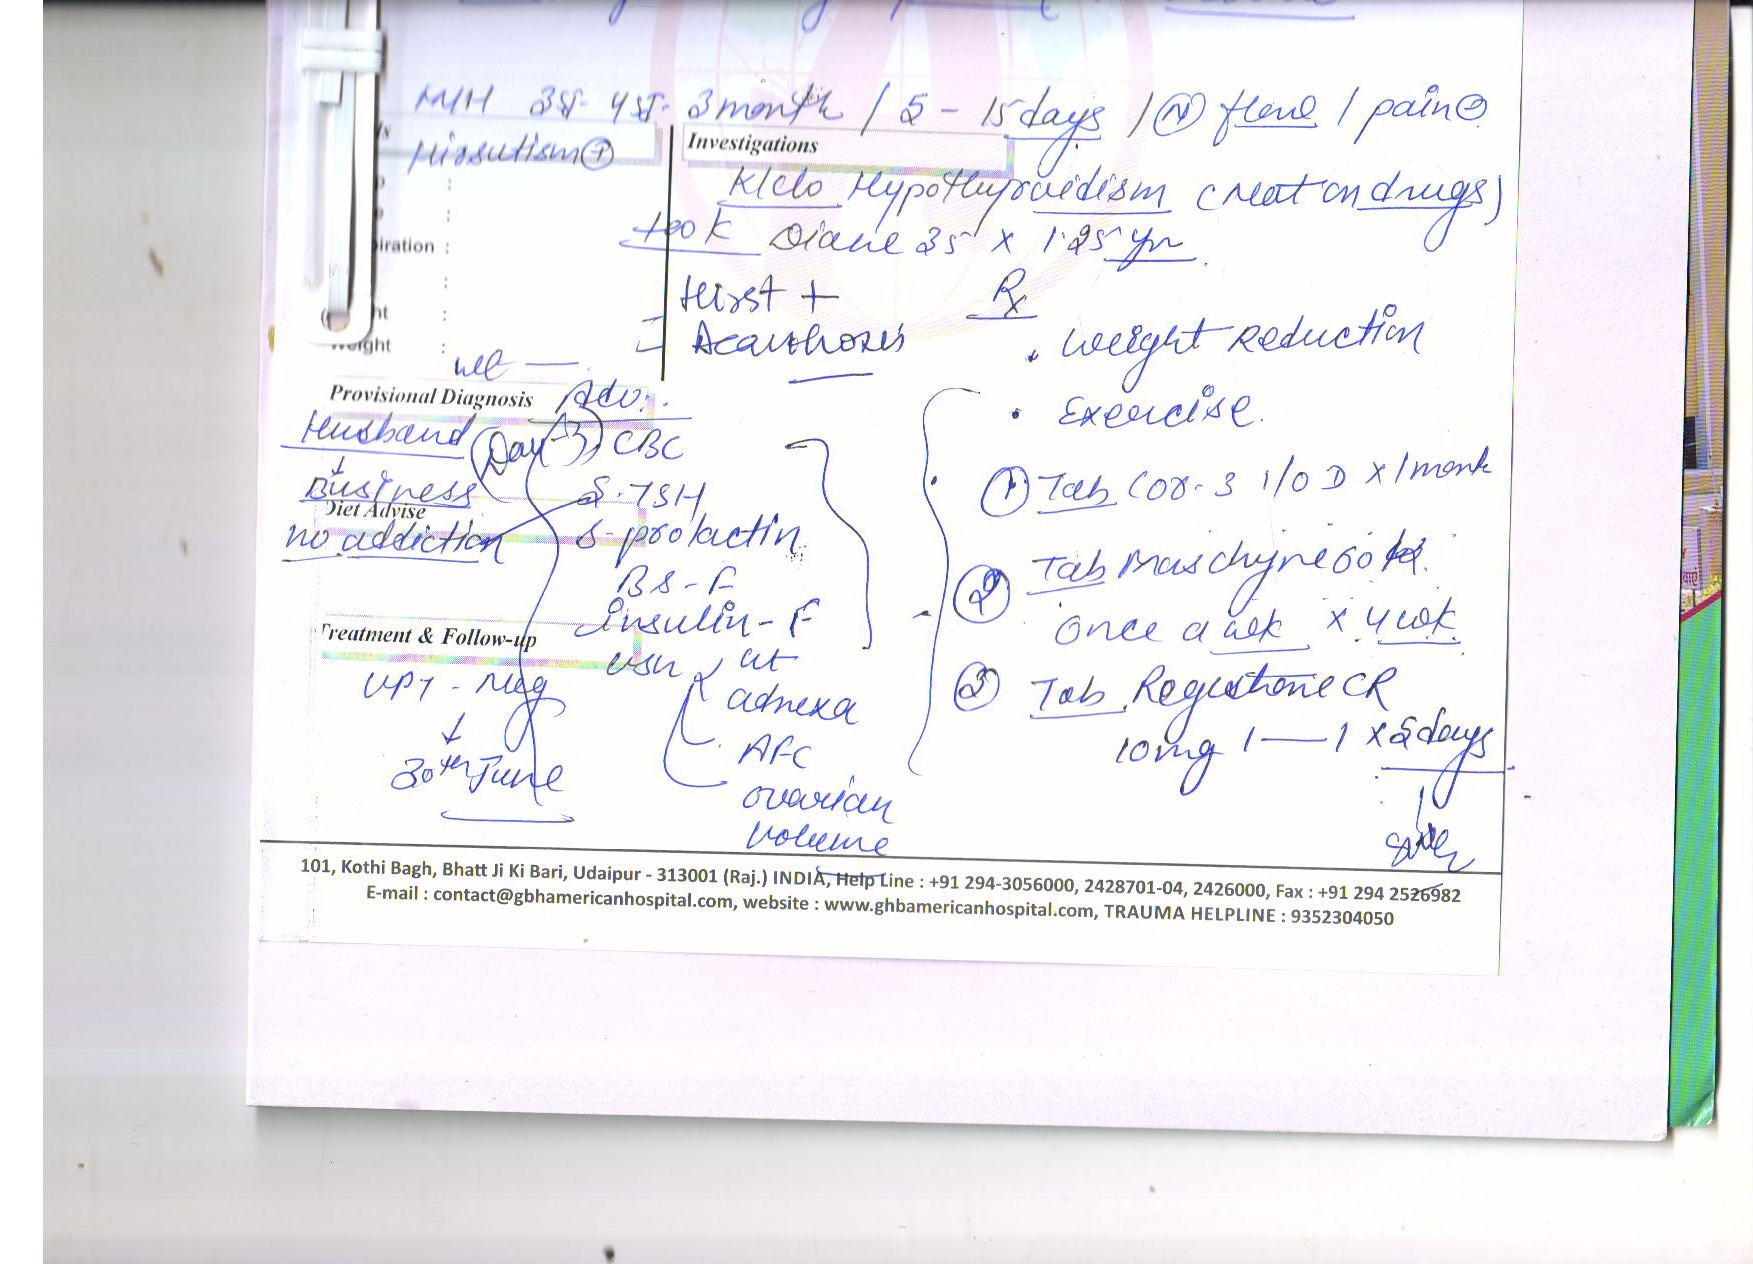 M/H 35- 45- 3 month / 5 - 15 days / N flow / pain
Hirsutism +
Investigations
K/c/o Hypothyroidism (not on drugs)
took Diane 35 x 1.25 yr
iration :
Hirst +
Acanthosis
Rx
. Weight Reduction
. Exercise.
Provisional Diagnosis
Adv:.
Husband
Business
no addiction
Diet Advise
(Day-3) CBC
S-TSH
S-prolactin
BS-F
insulin-F
Treatment & Follow-up
ut
adnexa
AFC
ovarian
volume
UPT - Neg
30th June
① Tab Cor-3 1/OD x 1 month
② Tab 60k
once a wk x 4 wk
③ Tab Regestrone CR
10mg 1—1 x 5 days
101, Kothi Bagh, Bhatt Ji Ki Bari, Udaipur - 313001 (Raj.) INDIA, Help Line : +91 294-3056000, 2428701-04, 2426000, Fax : +91 294 2526982
E-mail : contact@gbhamericanhospital.com, website : www.ghbamericanhospital.com, TRAUMA HELPLINE : 9352304050